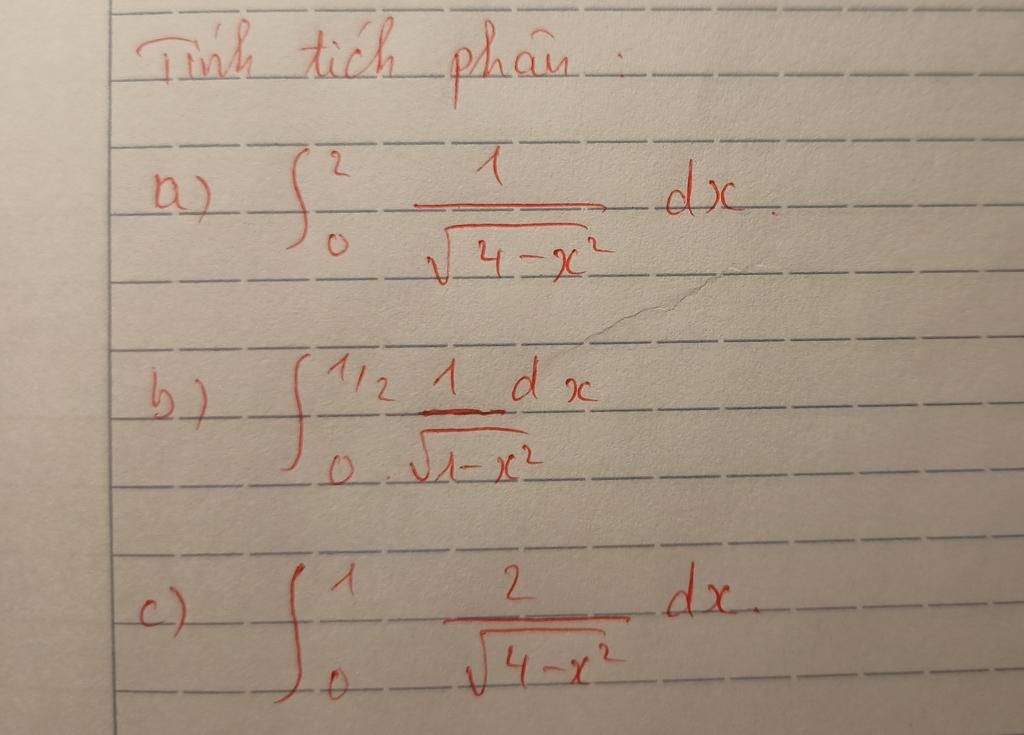 Tính tích phân :
a) ∫₀² 1/√(4-x²) dx.
b) ∫₀^{1/2} 1/√(1-x²) dx
c) ∫₀¹ 2/√(4-x²) dx.